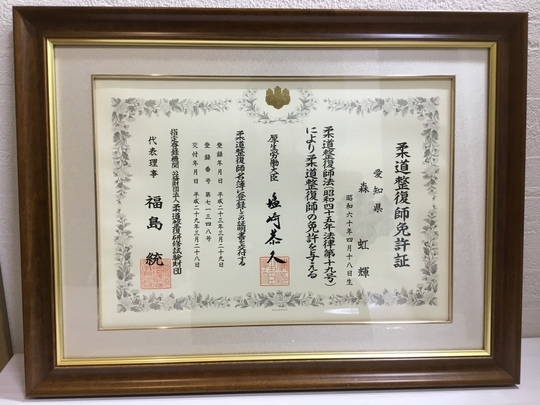 柔道整復師免許証
愛知県
森 虹輝
昭和六十年四月十八日生
柔道整復師法(昭和四十五年法律第十九号)
により柔道整復師の免許を与える
厚生労働大臣 塩崎恭久
柔道整復師名簿に登録したので証明書を交付する
登録年月日 平成二十三年三月二十九日
登録番号 第七一三四八号
交付年月日 平成二十九年三月二十八日
指定登録機関 公益財団法人柔道整復研修試験財団
代表理事 福島 統